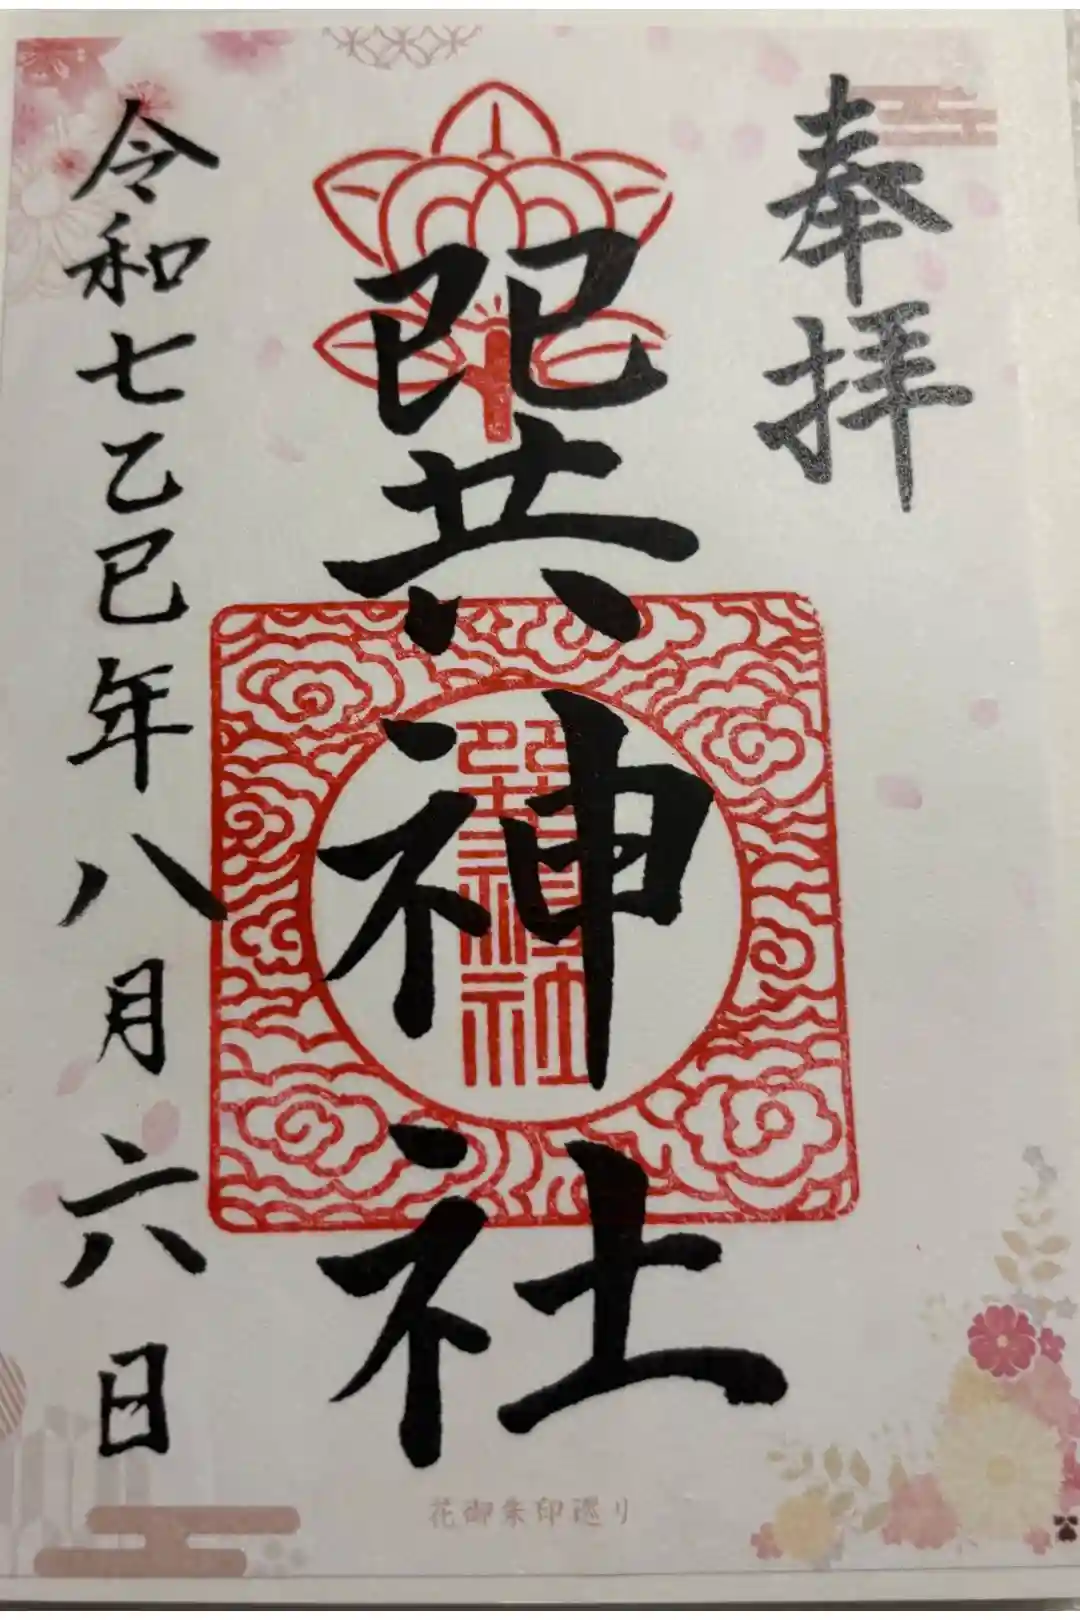 奉拝
巽神社
巽神社
令和七乙巳年八月六日
花御朱印巡り